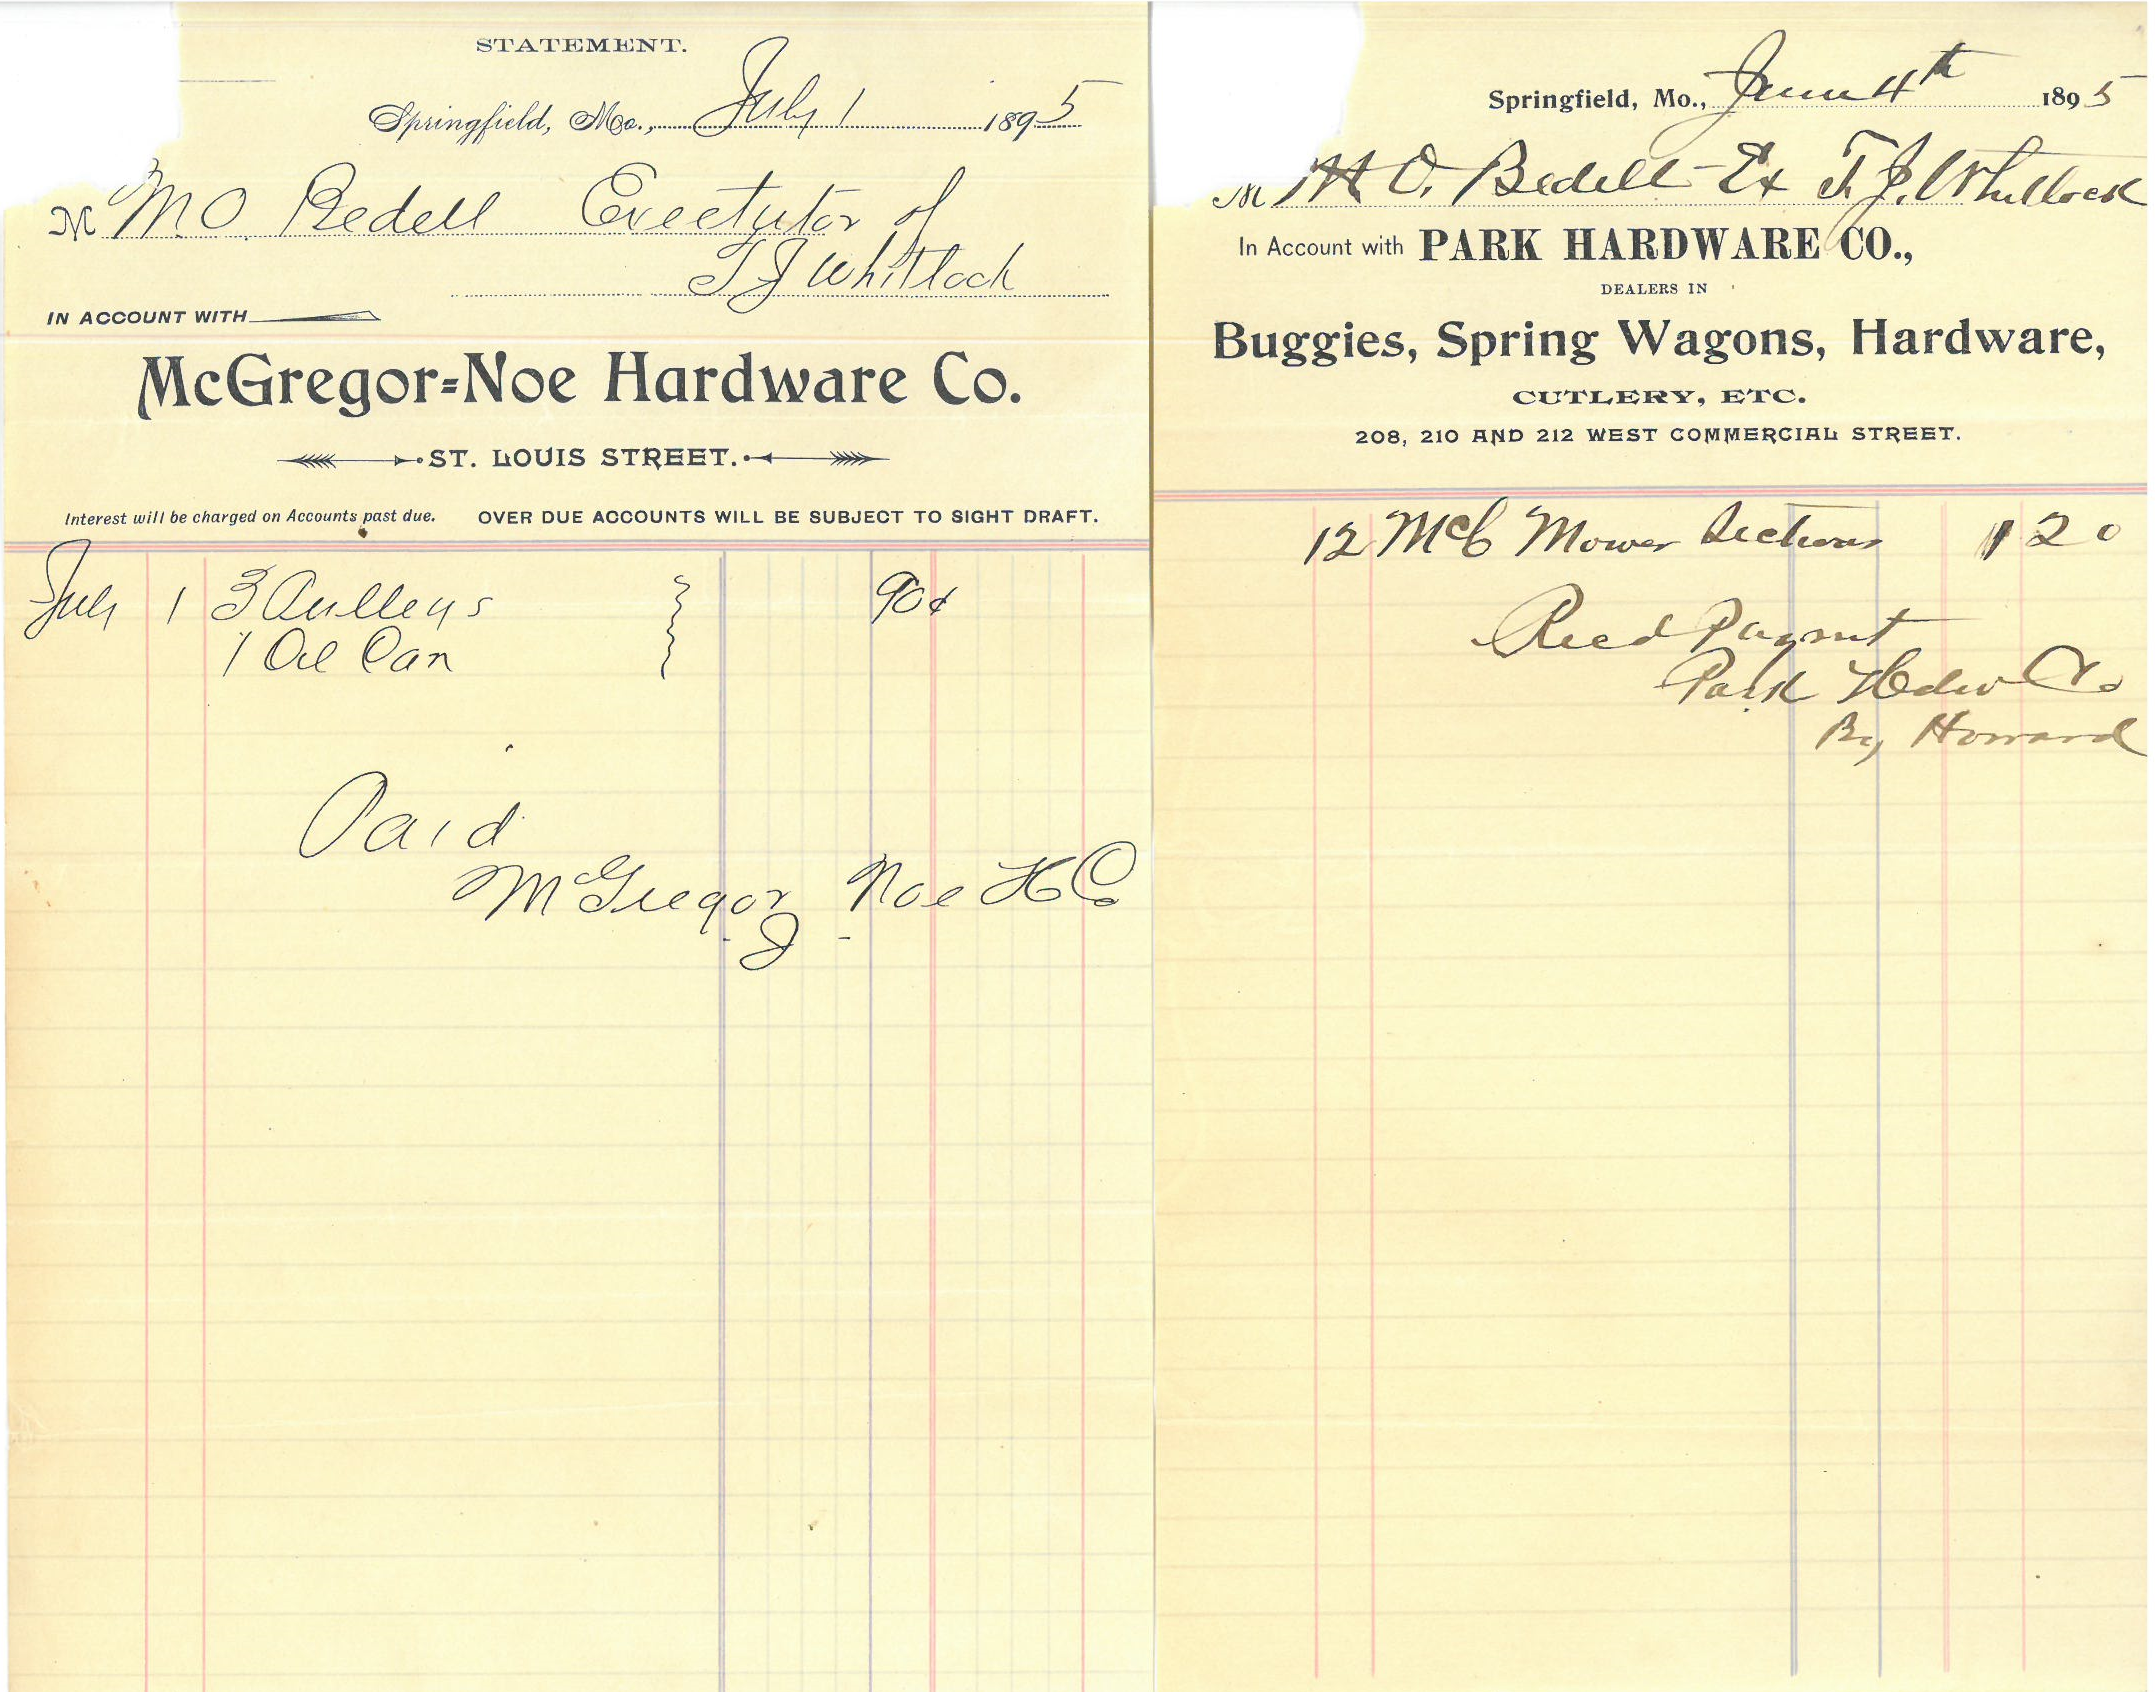 STATEMENT.
Springfield, Mo., July 1 1895
M M.O. Bedell Exectutor of
T J Whitlock
IN ACCOUNT WITH
McGregor=Noe Hardware Co.
ST. LOUIS STREET.
Interest will be charged on Accounts past due. OVER DUE ACCOUNTS WILL BE SUBJECT TO SIGHT DRAFT.
July 1 3 Pulleys 90¢
1 Oil Can
Paid
McGregor Noe H Co
J
Springfield, Mo., June 4th 1895
M M O. Bedell Ex T. J. Whitlock
In Account with PARK HARDWARE CO.,
DEALERS IN
Buggies, Spring Wagons, Hardware,
CUTLERY, ETC.
208, 210 AND 212 WEST COMMERCIAL STREET.
12 McC Mower Sections 1 20
Recd Paymt
Park Hdw Co
By Howard